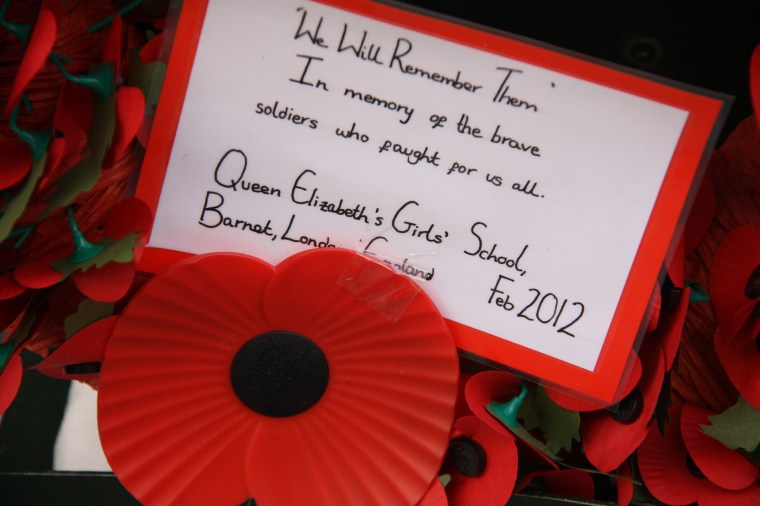 "We Will Remember Them"
In memory of the brave
soldiers who faught for us all.
Queen Elizabeth's Girls' School,
Barnet, London, England
Feb 2012